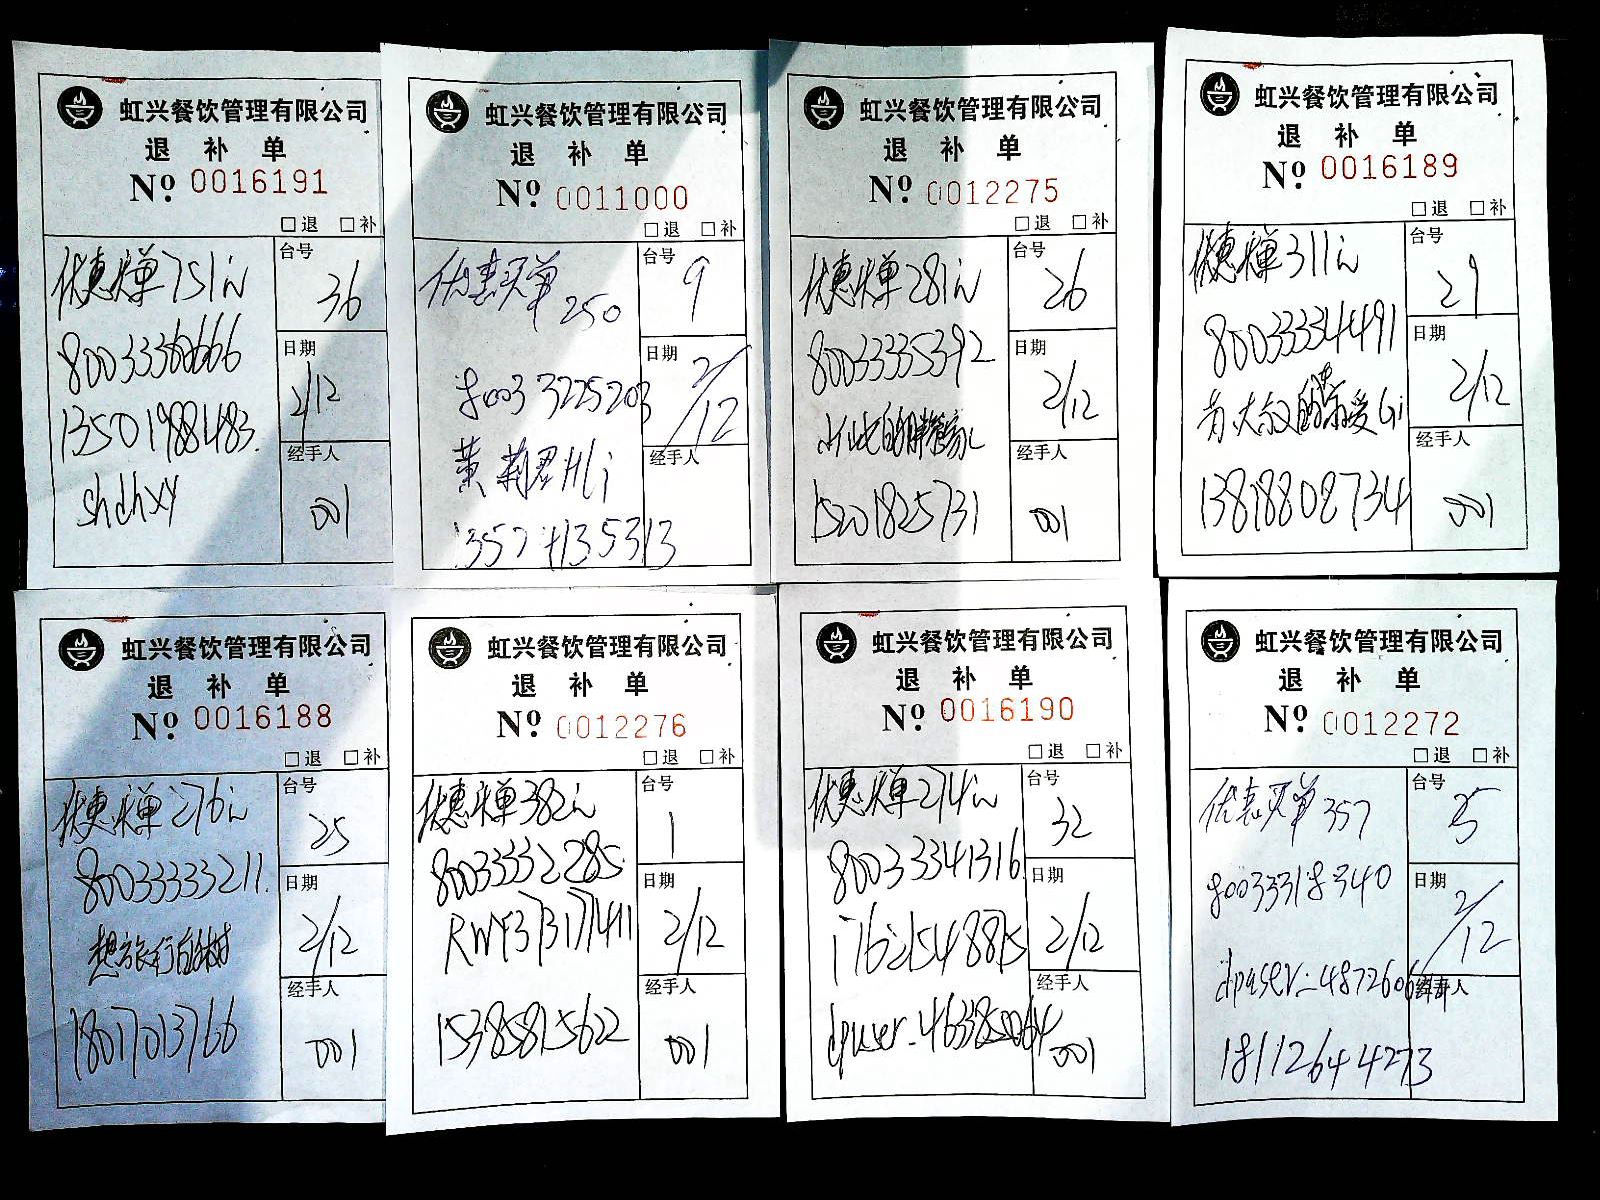 虹兴餐饮管理有限公司
退 补 单
Nº 0016191
□退 □补
优惠买单751
台号
36
80033360666
日期
2/12
13501988483.
经手人
shdhxy
001
虹兴餐饮管理有限公司
退 补 单
Nº 0011000
□退 □补
优惠买单
250
台号
9
80033225203
日期
2/12
经手人
虹兴餐饮管理有限公司
退 补 单
Nº 0012275
□退 □补
优惠买单281
台号
26
80033335392
日期
2/12
经手人
15201825731
001
虹兴餐饮管理有限公司
退 补 单
Nº 0016189
□退 □补
优惠买单311
台号
29
80033334491
日期
2/12
经手人
13818808734
001
虹兴餐饮管理有限公司
退 补 单
Nº 0016188
□退 □补
优惠买单276
台号
25
80033333211.
日期
2/12
经手人
18017013766
001
虹兴餐饮管理有限公司
退 补 单
Nº 0012276
□退 □补
优惠买单382
台号
1
80033332285
日期
2/12
经手人
15385815622
001
虹兴餐饮管理有限公司
退 补 单
Nº 0016190
□退 □补
优惠买单274
台号
32
80033341316
日期
2/12
17621548875
经手人
001
虹兴餐饮管理有限公司
退 补 单
Nº 0012272
□退 □补
优惠买单357
台号
5
80033318340
日期
2/12
经手人
18112644273